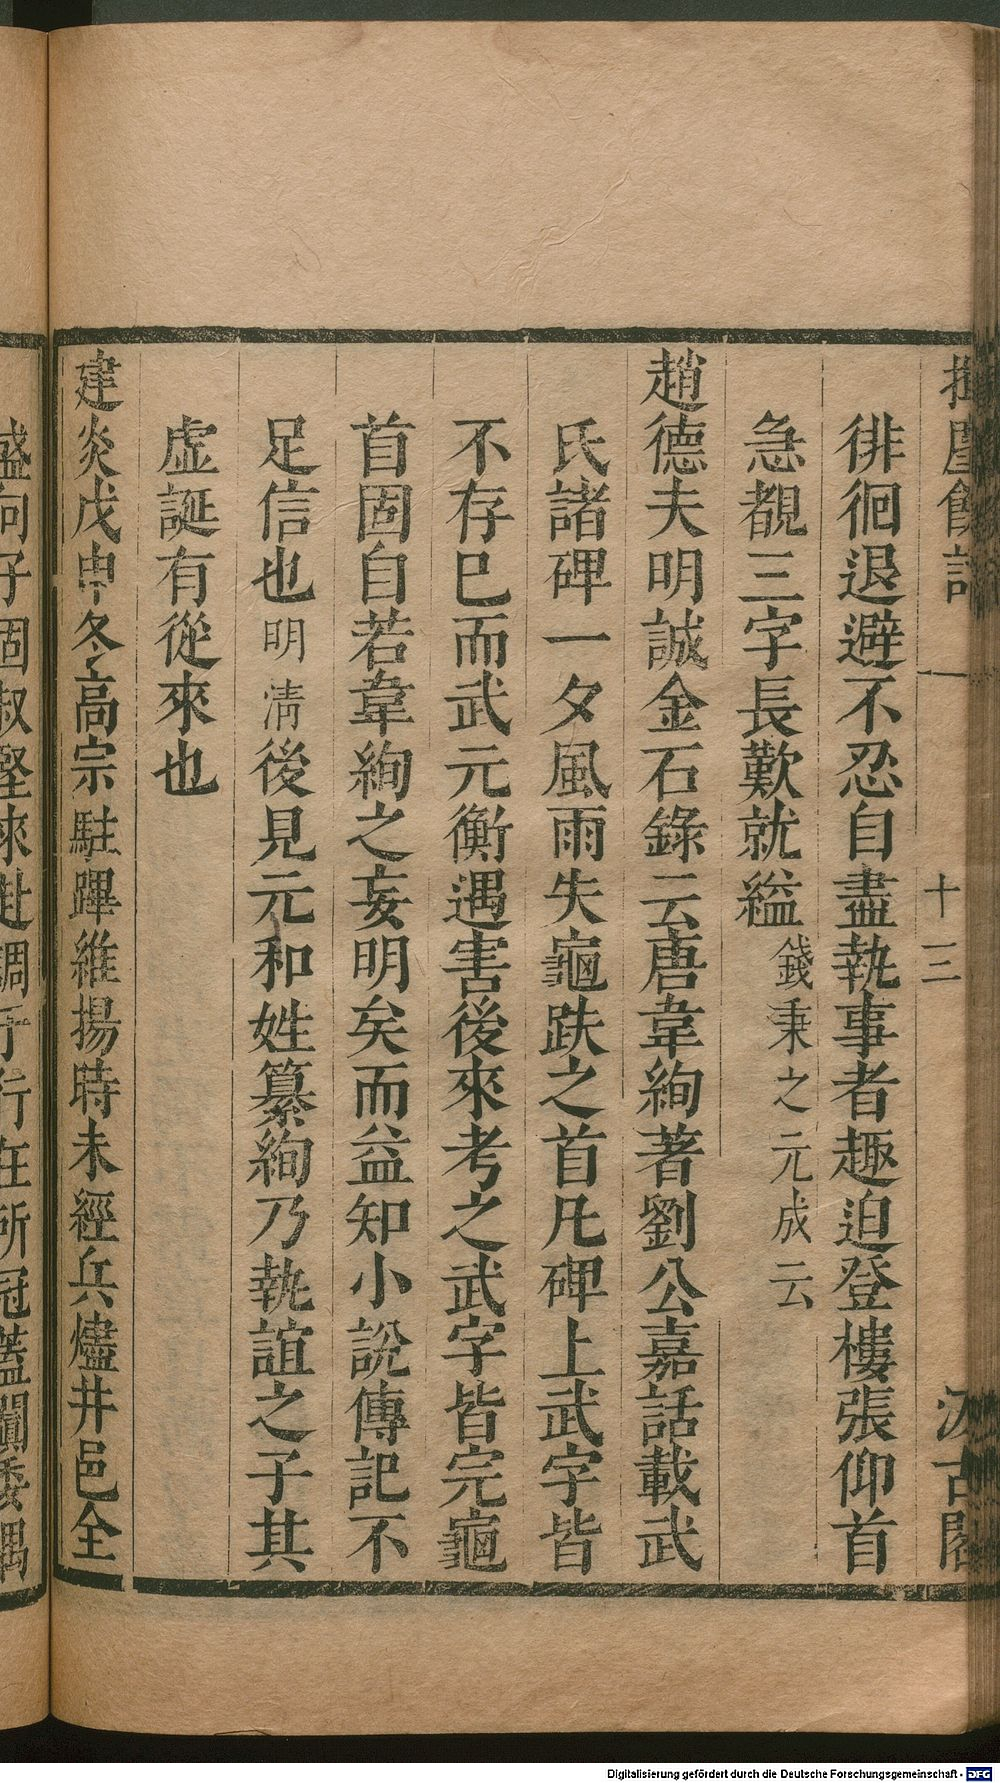 揮麈餘話 一 十三 汲古閣
徘徊退避不忍自盡執事者趣迫登樓張仰首
急覩三字長歎就縊錢秉之元成云
趙德夫明誠金石錄云唐韋絢著劉公嘉話載武
氏諸碑一夕風雨失龜趺之首凡碑上武字皆
不存已而武元衡遇害後來考之武字皆完龜
首固自若韋絢之妄明矣而益知小說傳記不
足信也明清後見元和姓纂絢乃執誼之子其
虛誕有從來也
建炎戊申冬高宗駐蹕維揚時未經兵燼井邑全
盛向子固叔堅來赴調于行在所冠蓋闐委偶
Digitalisierung gefördert durch die Deutsche Forschungsgemeinschaft - DFG